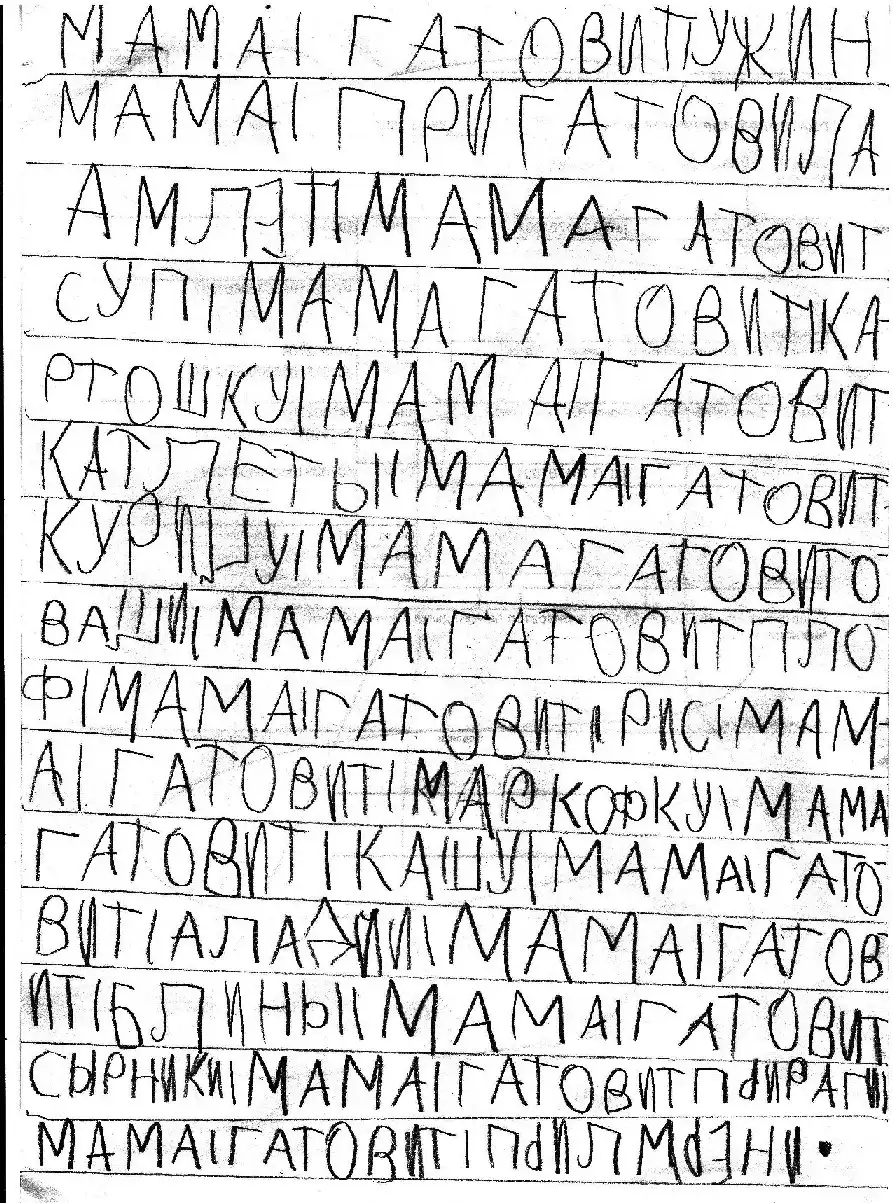 МАМА| ГАТОВИТ УЖИН
МАМА| ПРИГАТОВИЛА
АМЛЭТ МАМА ГАТОВИТ
СУП| МАМА ГАТОВИТ|КА
РТОШКУ| МАМА|ГАТОВИТ
КАТЛЕТЫ| МАМА|ГАТОВИТ
КУРИЦУ| МАМА ГАТОВИТ О
ВАЩИ| МАМА|ГАТОВИТ ПЛО
Ф|МАМА|ГАТОВИТ|РИС|МАМ
А| ГАТОВИТ|МАРКОФКУ|МАМА
ГАТОВИТ|КАШУ|МАМА|ГАТО
ВИТ|АЛАДИИ|МАМА|ГАТОВ
ИТ|БЛИНЫ| МАМА|ГАТОВИТ
СЫРНИКИ|МАМА|ГАТОВИТ ПИРАГИ|
МАМА|ГАТОВИТ| .